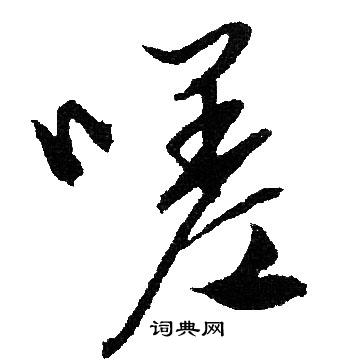 嗟
词典网